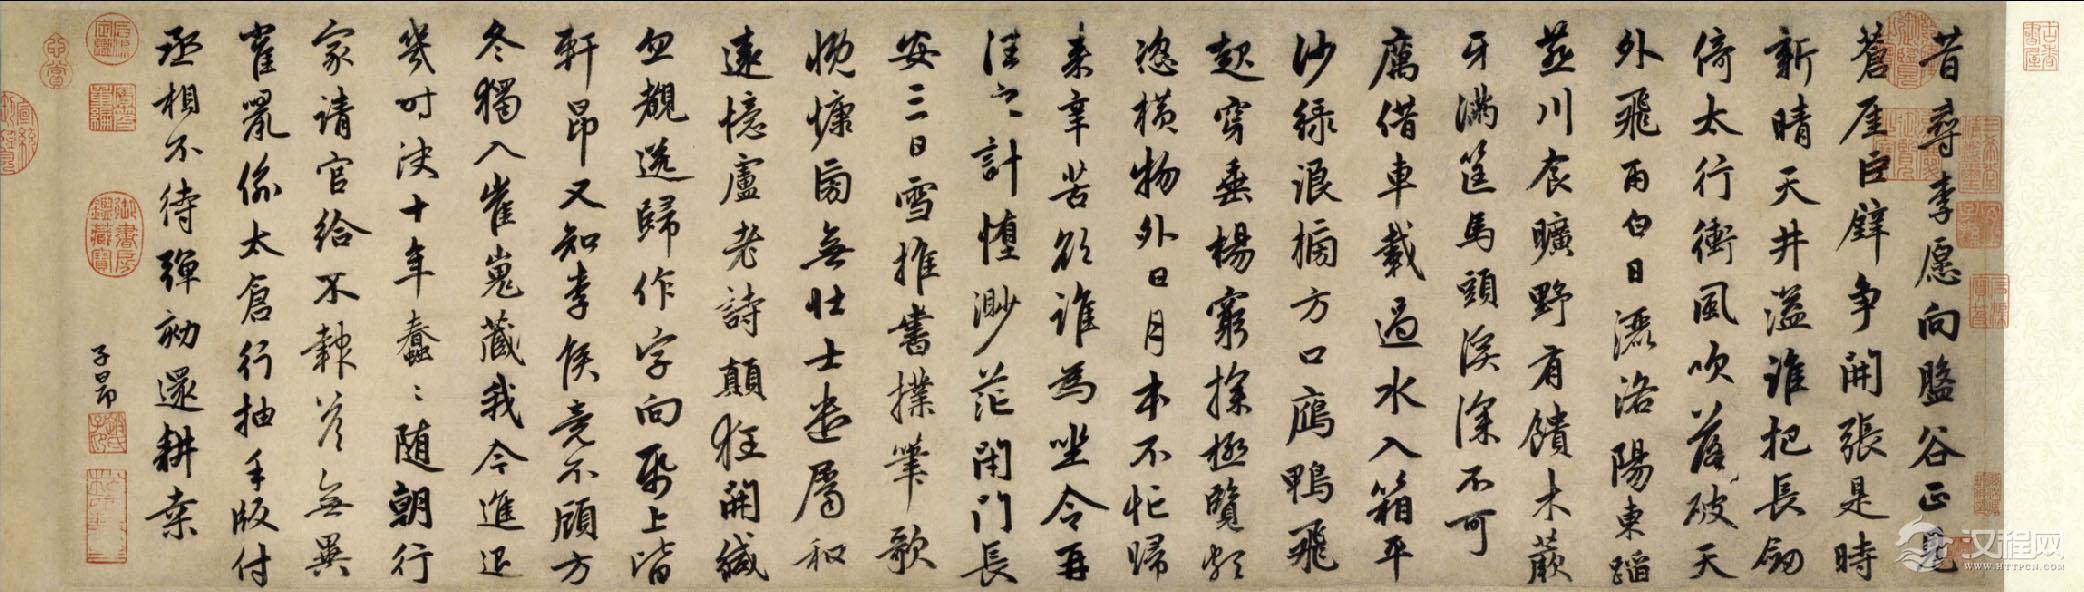 昔尋李愿向盤谷正見
蒼厓巨壁爭開張是時
新晴天井溢誰把長劒
倚太行衝風吹落破天
外飛雨白日灑洛陽東蹈
燕川食曠野有饋木蕨
牙滿筐馬頭溪深不可
厲借車載過水入箱平
沙綠浪榜方口鴈鴨飛
起穿垂楊窮探極覽頗
恣橫物外日月本不忙歸
來辛苦欲誰為坐令再
往之計墮渺茫閉門長
安三日雪推書撲筆歌
慨慷旁無壯士遣屬和
遠憶盧老詩顛狂開緘
忽覩送歸作字向紙上皆
軒昂又知李侯竟不顧方
冬獨入崔嵬藏我今進退
幾時決十年蠢〻隨朝行
家請官給不報答無異
雀鼠偷太倉行抽手版付
丞相不待彈劾還耕桑
子昂
御書房鑑藏寶
汉程网
WWW.HTTPCN.COM